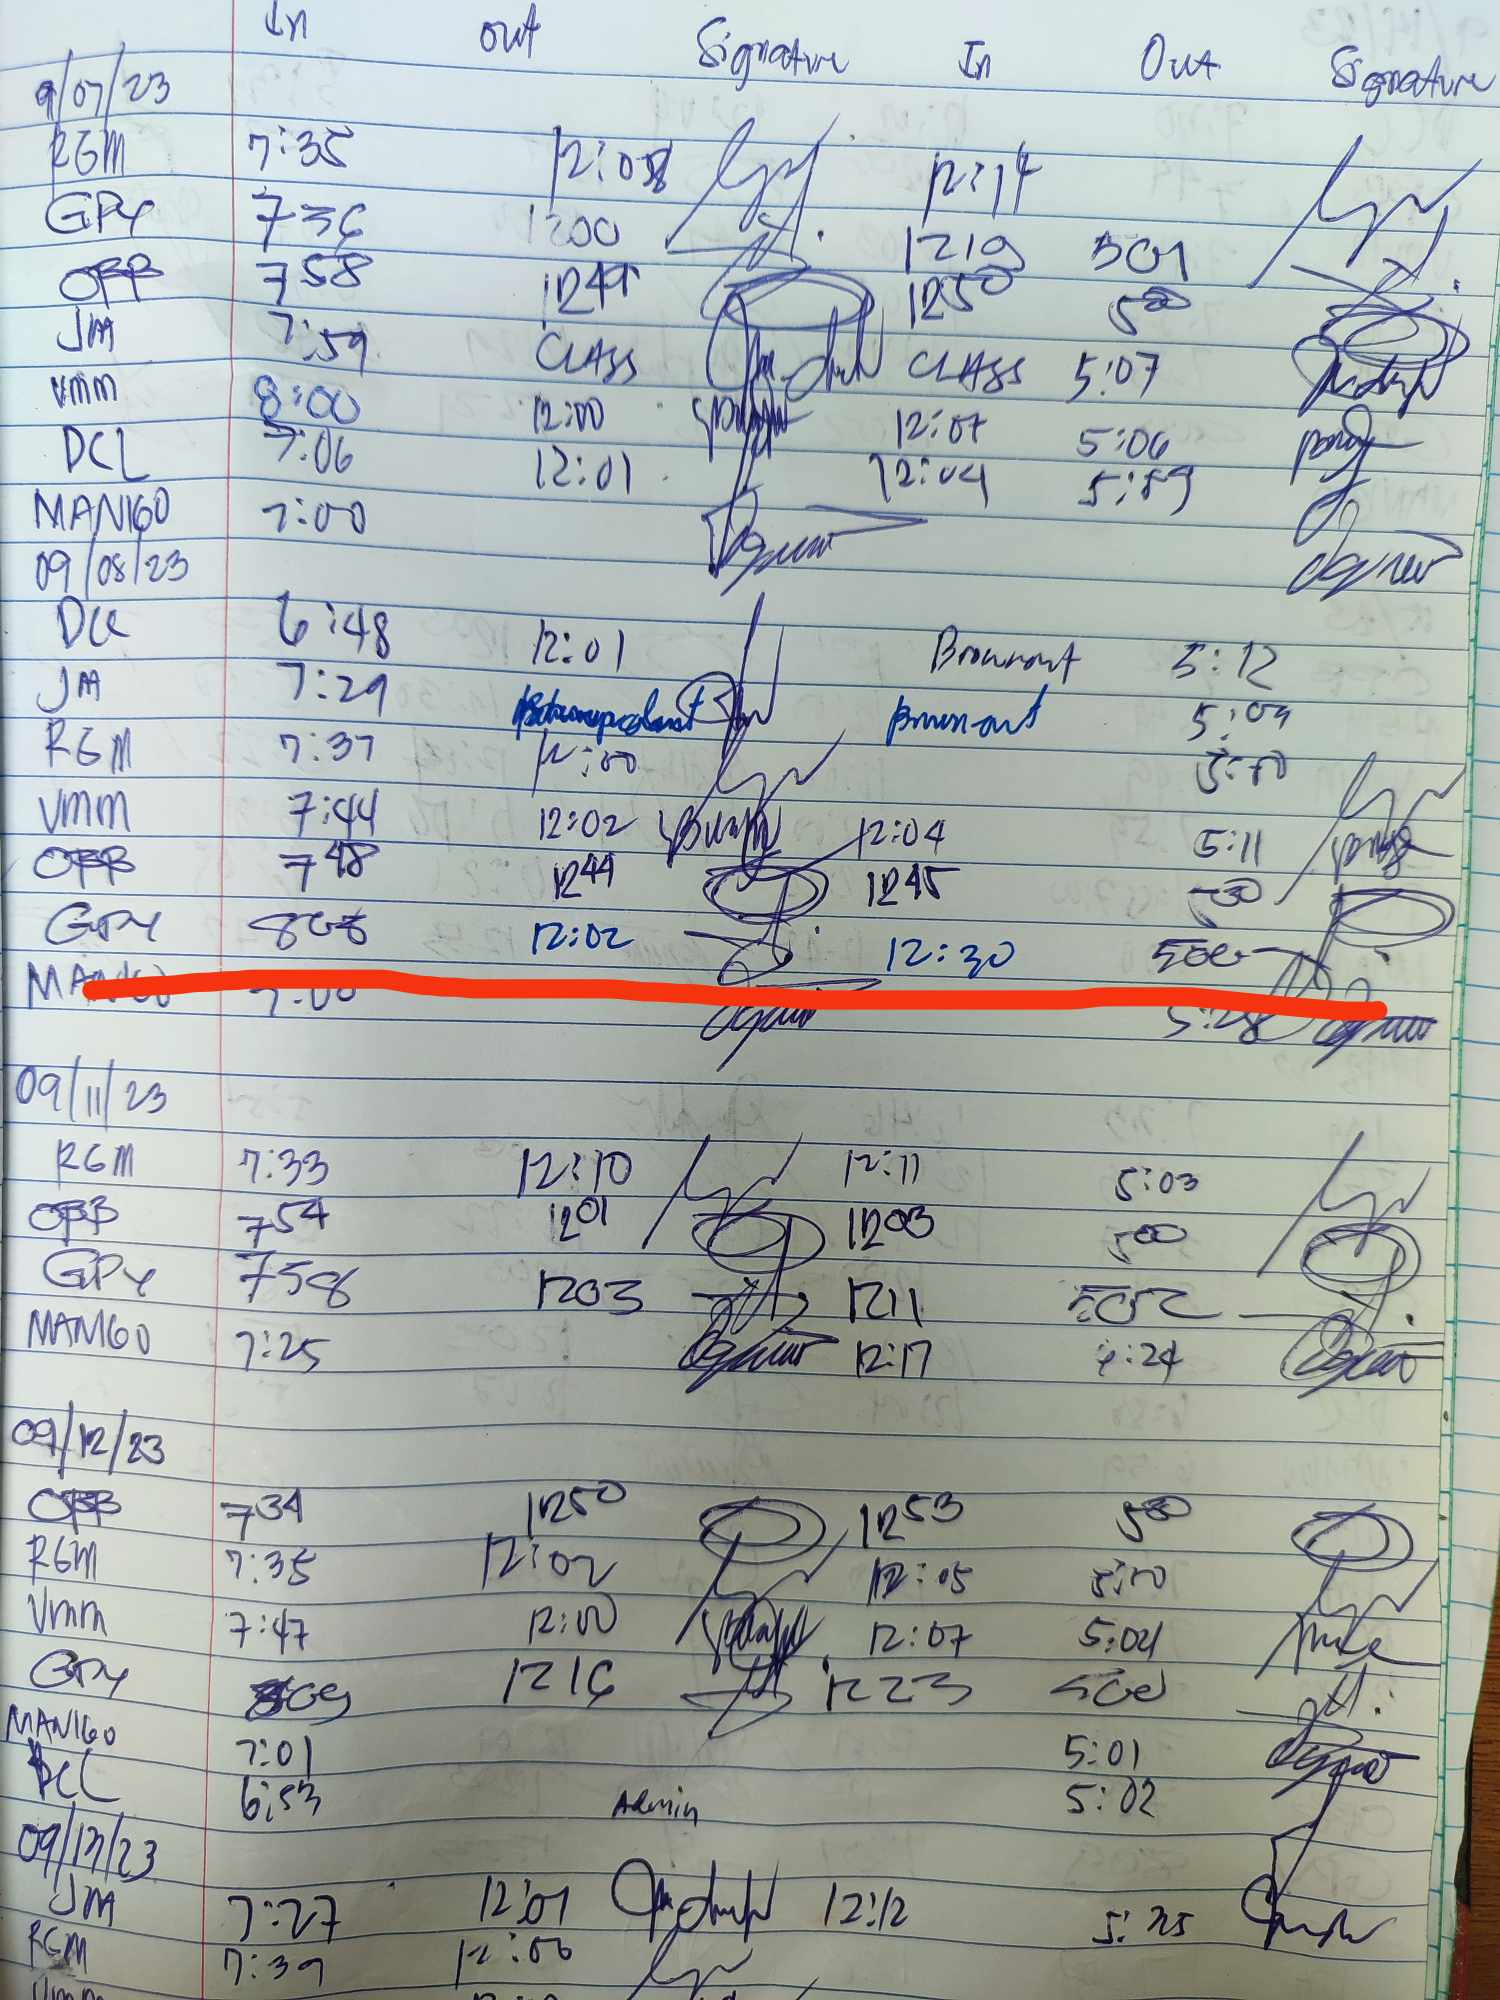 In out Signature In Out Signature
9/07/23
RGM 7:35 12:08 12:14
GPY 736 1200 1219 501
OBB 758 1249 1250 500
JM 7:59 CLASS CLASS 5:07
VMM 8:00 12:00 12:07 5:06
DCL 7:06 12:01 12:04 5:59
MANIGO 7:00
09/08/23
DCL 6:48 12:01 Brownout 5:12
JM 7:29 Brown-out 5:09
RGM 7:37 12:00 5:00
VMM 7:44 12:02 12:04 5:11
OBB 748 1244 1245 500
GPY 808 12:02 12:30 500
MANIGO 7:00 5:28
09/11/23
RGM 7:33 12:10 12:11 5:03
OBB 754 1201 1203 500
GPY 758 1203 1211 502
MANIGO 7:25 12:17 :24
09/12/23
OBB 734 1250 1253 500
RGM 7:35 12:02 12:05 5:00
VMM 7:47 12:00 12:07 5:04
GPY 809 1216 1223 500
MANIGO 7:01 5:01
DCL 6:53 Admin 5:02
09/13/23
JM 7:27 12:01 12:12 5:25
RGM 7:39 12:00
VMM